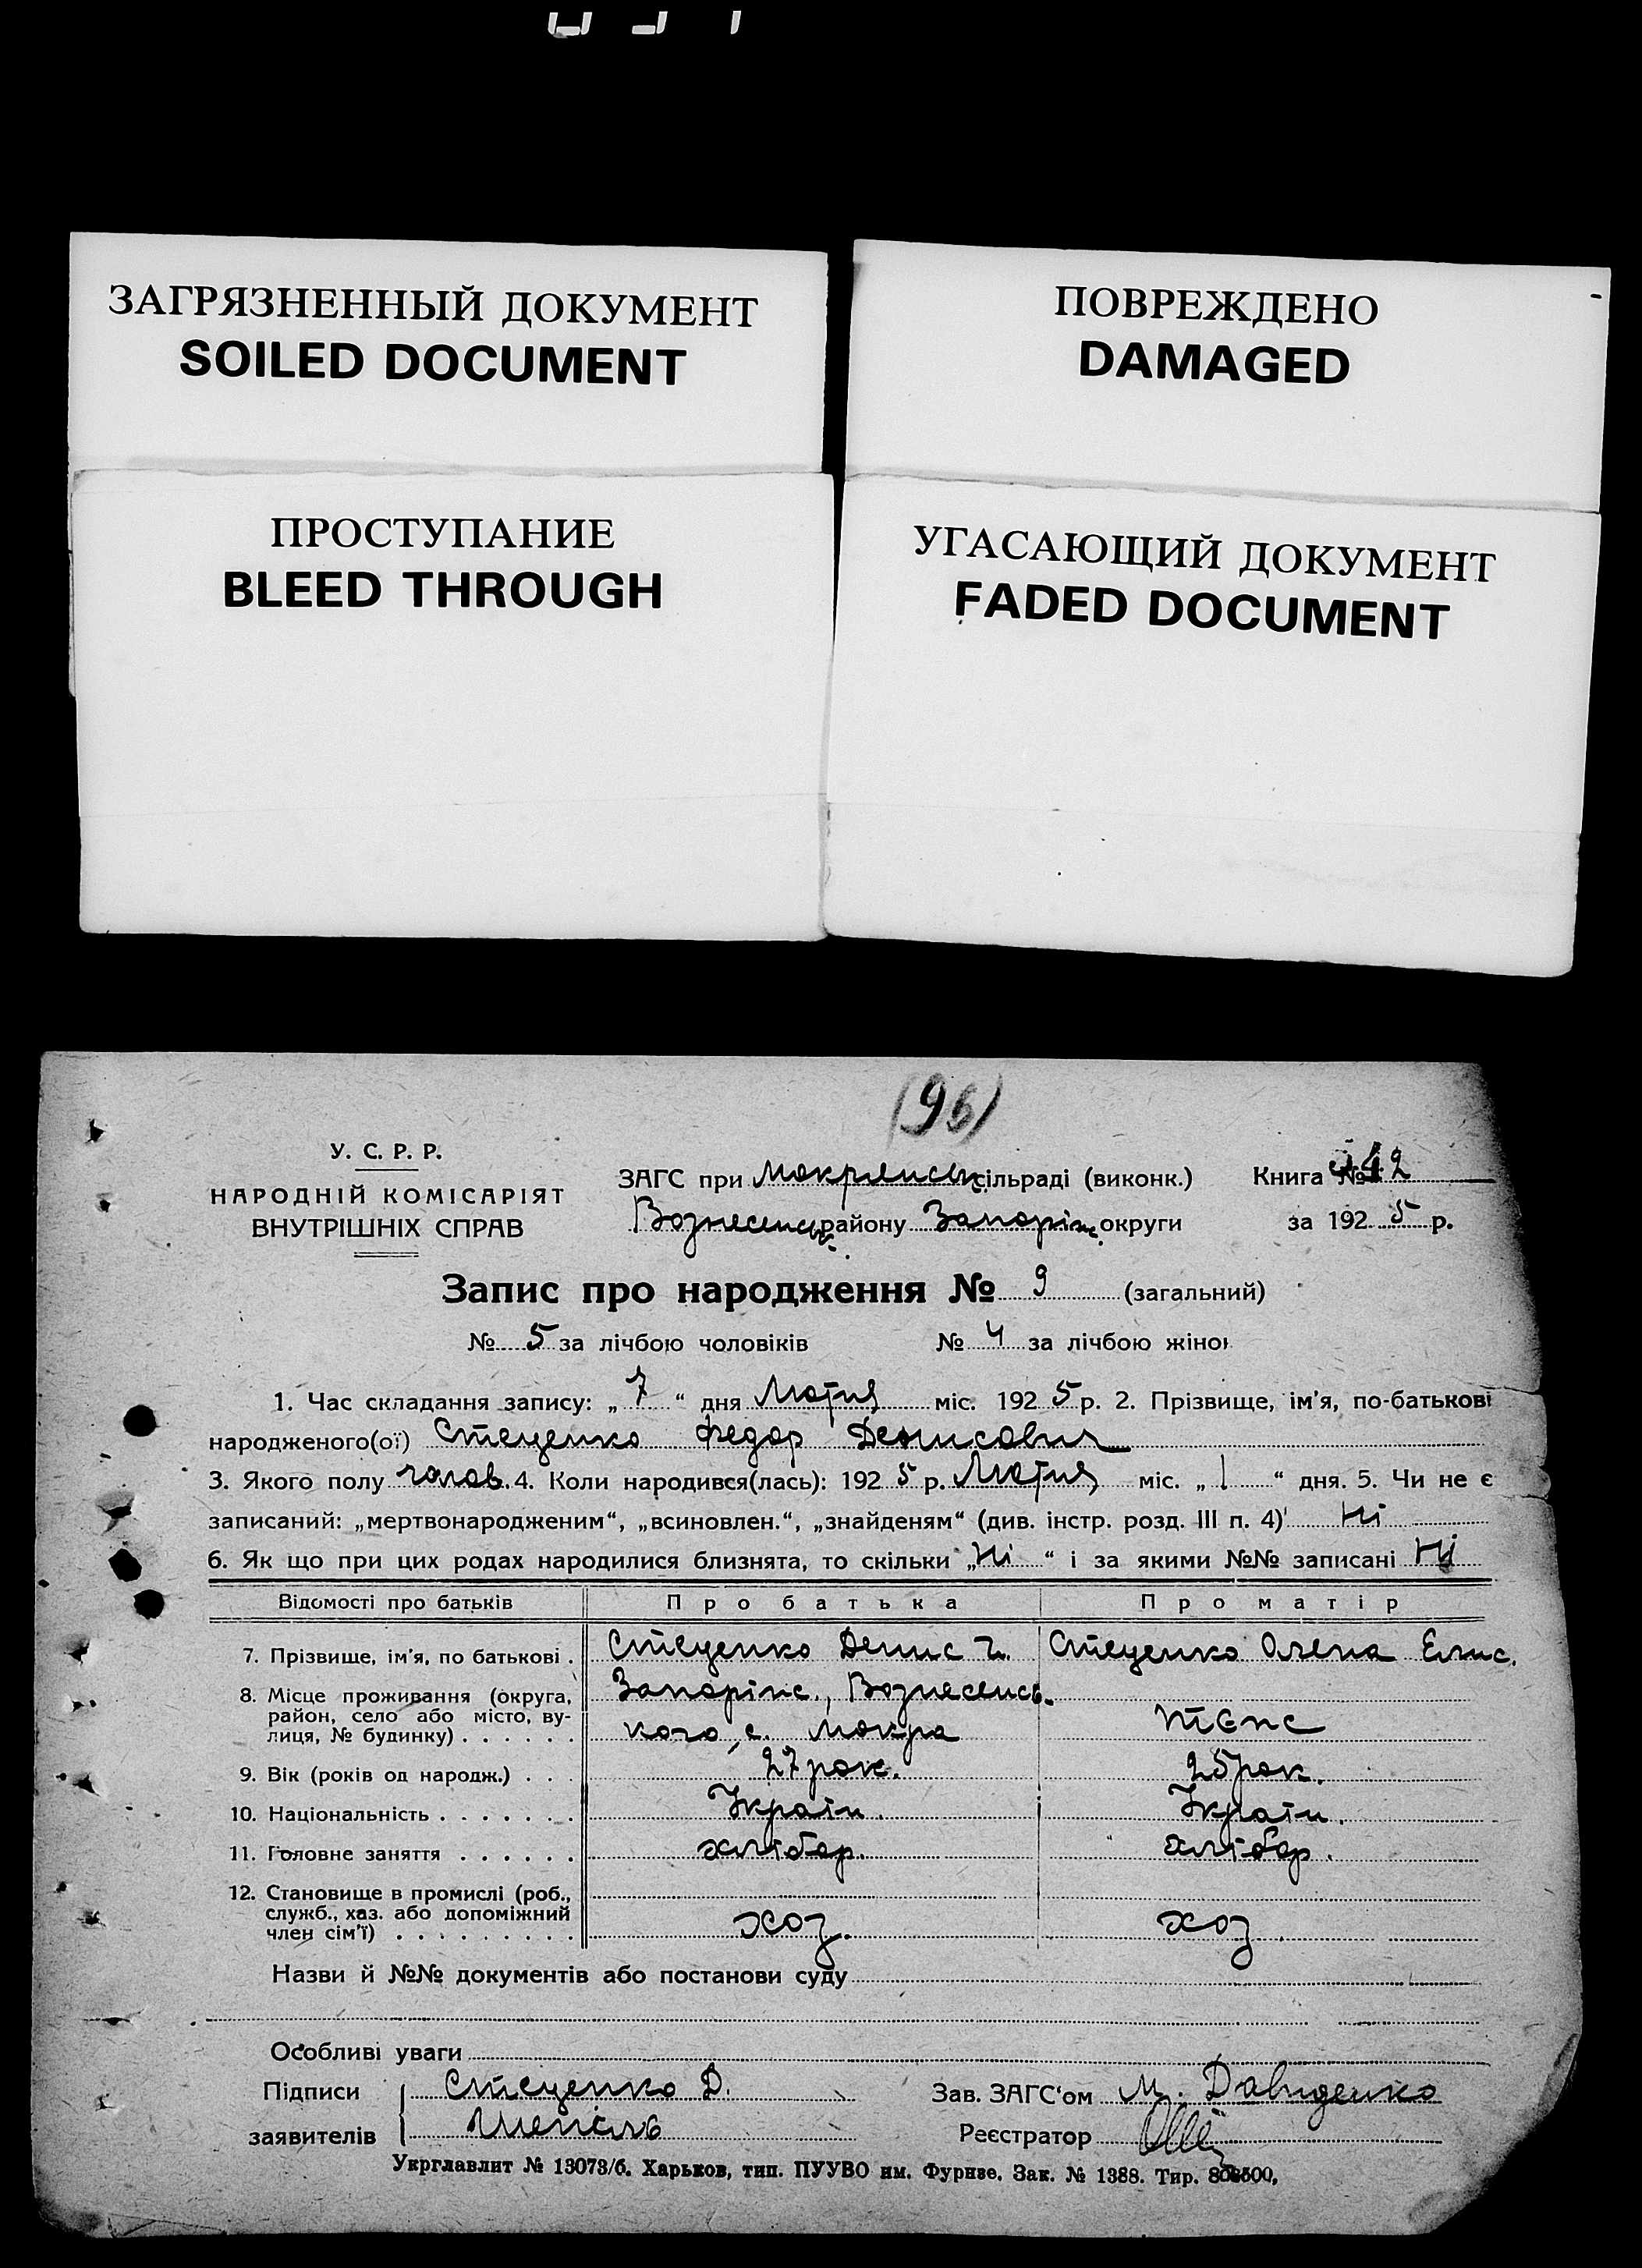 ЗАГРЯЗНЕННЫЙ ДОКУМЕНТ
SOILED DOCUMENT
ПОВРЕЖДЕНО
DAMAGED
ПРОСТУПАНИЕ
BLEED THROUGH
УГАСАЮЩИЙ ДОКУМЕНТ
FADED DOCUMENT
(96)
У. С. Р. Р.
НАРОДНІЙ КОМІСАРІЯТ
ВНУТРІШНІХ СПРАВ
ЗАГС при Мокрянськ. сільраді (виконк.)
Вознесенськ. району Запоріж. округи
Книга №
за 192 5 р.
Запис про народження № 9 (загальний)
№ 5 за лічбою чоловіків № 4 за лічбою жінок
1. Час складання запису: „ 7 “ дня Лютня міс. 192 5 р. 2. Прізвище, ім'я, по-батькові
народженого(ої) Стеценко Федор Денисович
3. Якого полу чолов. 4. Коли народився(лась): 192 5 р. Лютня міс. „ 1 “ дня. 5. Чи не є
записаний: „мертвонародженим“, „всиновлен.“, „знайденям“ (див. інстр. розд. III п. 4) Ні
6. Як що при цих родах народилися близнята, то скільки „ Ні “ і за якими №№ записані Ні
Відомості про батьків Про батька Про матір
7. Прізвище, ім'я, по батькові . Стеценко Денис І. Стеценко Олена Елис.
8. Місце проживання (округа, Запоріж., Вознесенсь-
район, село або місто, ву-
лиця, № будинку) . . . . . . кого, с. Мокра теж
9. Вік (років од народж.) . . . 27 рок. 25 рок.
10. Національність . . . . . . . Україн. Україн.
11. Головне заняття . . . . . . хлібор. хлібор.
12. Становище в промислі (роб.,
служб., хаз. або допоміжний
член сім'ї) . . . . . . . . . хоз. хоз
Назви й №№ документів або постанови суду
Особливі уваги
Підписи Стеценко Д.
заявителів
Зав. ЗАГС'ом М. Давиденко
Реєстратор
Укрглавлит № 13073/б. Харьков, тип. ПУУВО им. Фурнзе. Зак. № 1388. Тир.